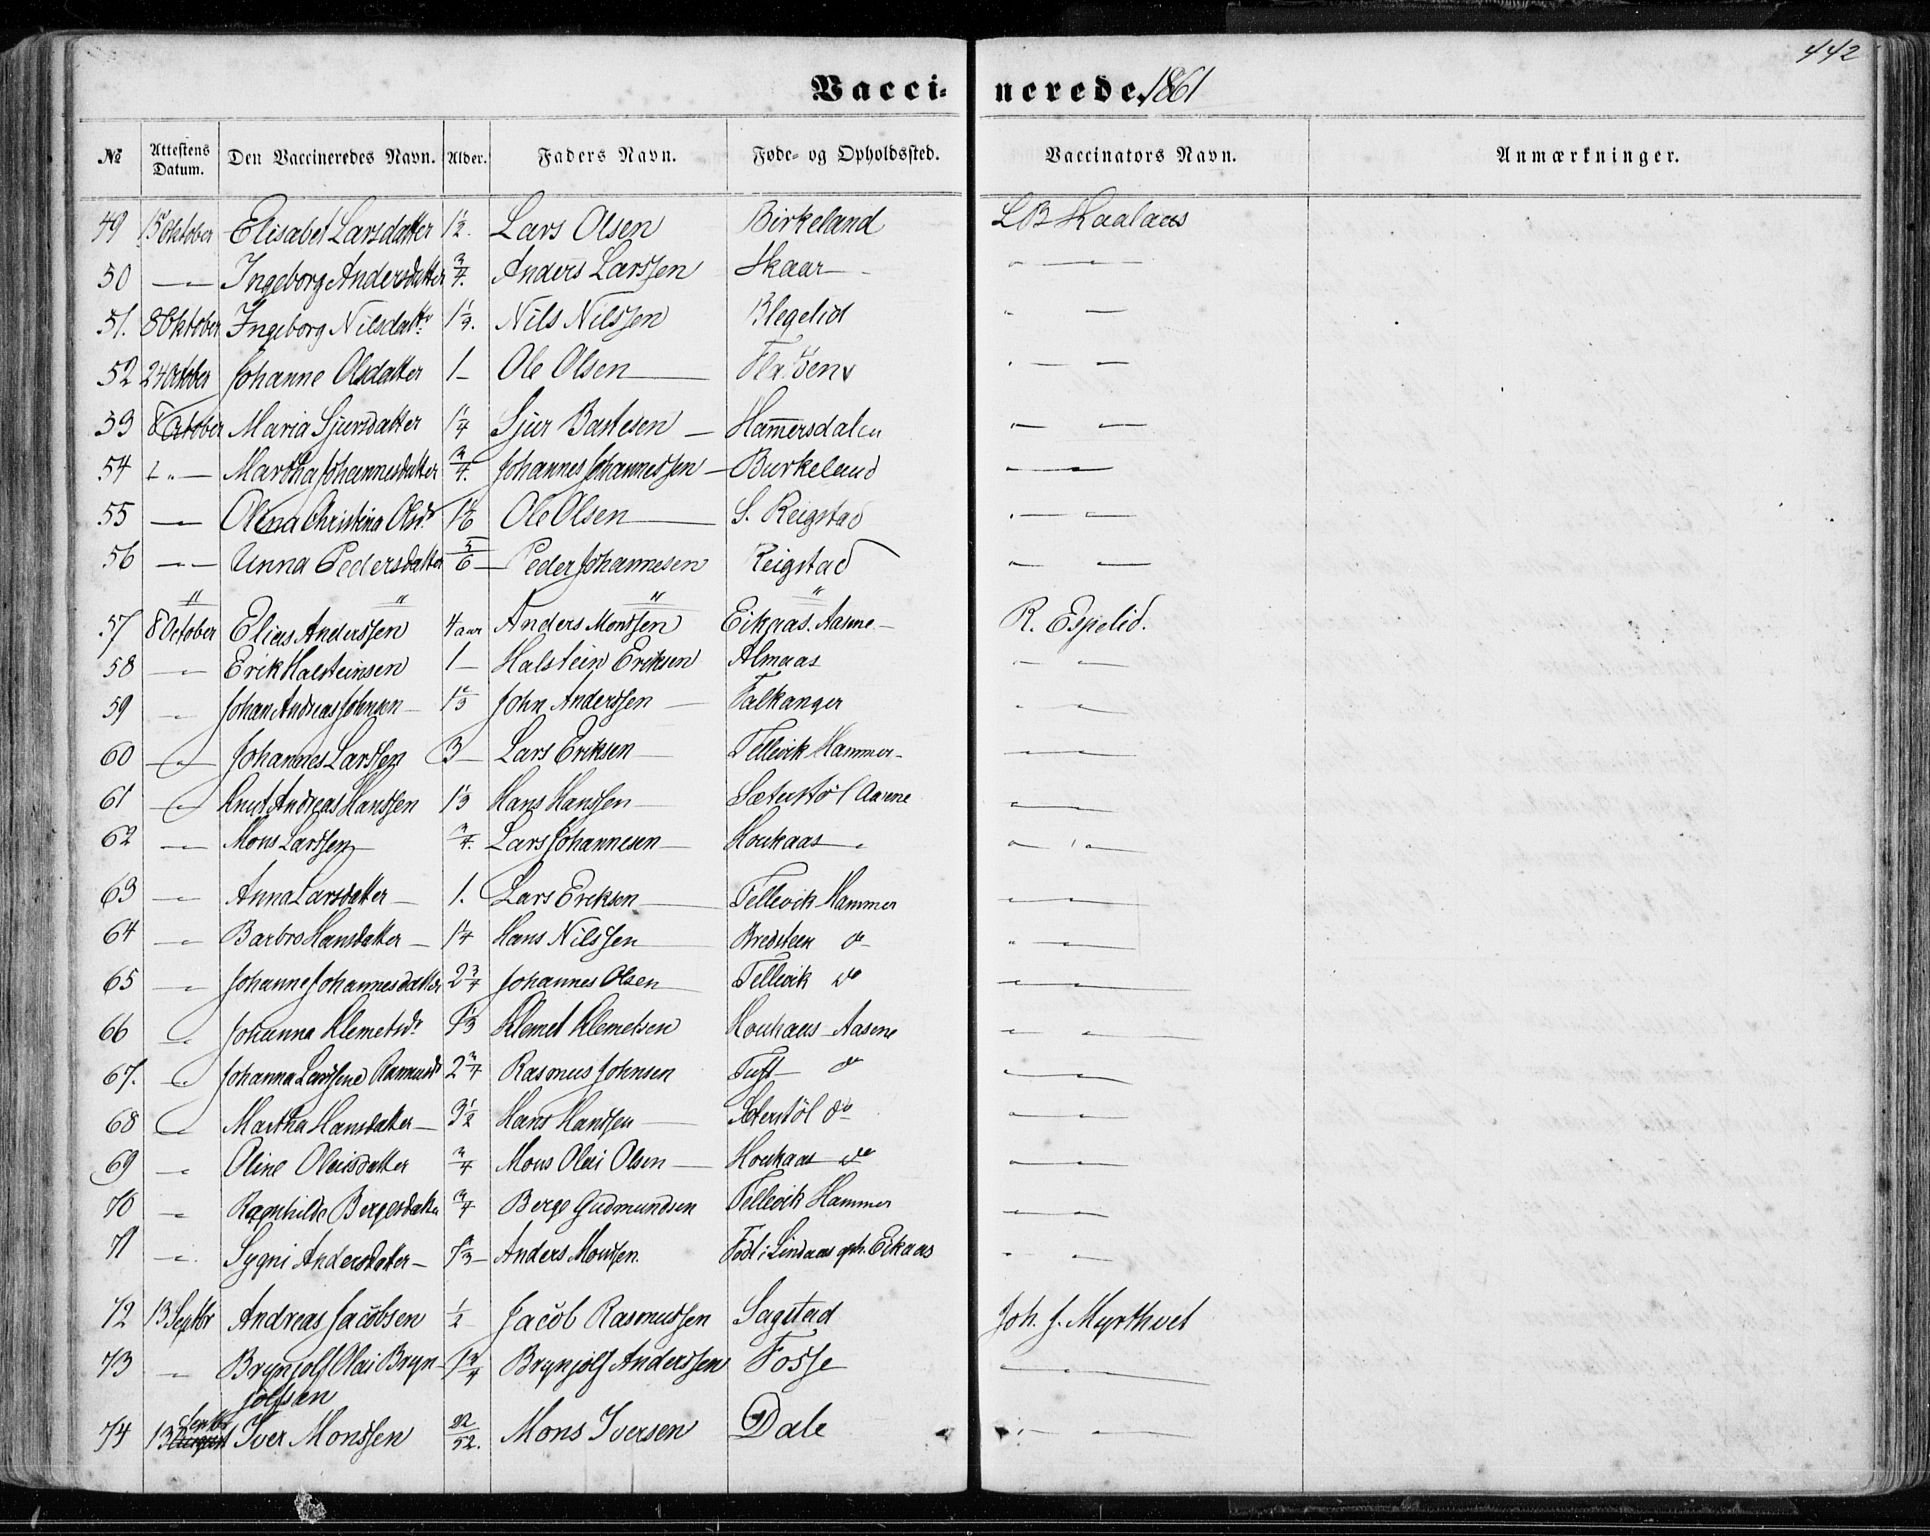 442
Vacci- nerede. 1861
№ Attestens Datum. Den Vaccineredes Navn. Alder. Faders Navn. Føde- og Opholdssted. Vaccinators Navn. Anmærkninger.
49 15 Oktober Elisabet Larsdatter 1½. Lars Olsen Birkeland LB Haalaas
50 — " — Ingeborg Andersdatter ¾. Anders Larssen Skaar " —
51. 8 Oktober Ingeborg Nilsdattr 1⅓. Nils Nilssen Blegelid " —
52 24 October Johanne Olsdatter 1 — Ole Olsen " —
53 8 October Maria Sjursdatter 1¼ Sjur Bastesen — Ham̅ersdalen " —
54 — " — Martha Johannesdatter ¾. Johannes Johannessen — Burkeland " —
55 — " — Olena Christina Olsdr 1⅙ Ole Olsen — S. Reigstad " —
56 — " — Anna Pedersdatter ⅚ — Peder Johannesen Reigstad " —
" " " "
57. 8 October Elias Anderssen 4 aar Anders Monssen Eikaas. Aasene — R. Espelid.
58 — " — Erik Halsteinsen 1 — Halstein Eriksen Almaas " —
59 — " — Johan Andreas Johnsen — 1⅓ John Anderssen — Falkanger " —
60 — " — Johannes Larssen 3 — Lars Eriksen — Tellevik Hammer — " —
61 — " — Knut Andreas Hanssen 1⅓ Hans Hanssen — Sæterstøl Aasene " —
62 — " — Mons Larssen — ¾. Lars Johannesen — Houkaas " " —
63 — " — Anna Larsdatter — 1. Lars Ereksen — Tellevik Hammer " —
64 — " — Barbro Hansdatter — 1¼ Hans Nilssen — Bredsteen do " —
65 — " — Johanne Johannesdatter 2¾ Johannes Olsen — Tellevik do " —
66 — " — Johanna Klemetsdr 1⅓ Klemet Klemetsen Houkaas — Aasene " —
67. — " — Johanna Rasmusd 2¾ Rasmus Johnsen Tuft — do " —
68 — " — Martha Hansdatter — 3½ Hans Hanssen — Sæterstöl do " —
69 — " — Oline Olaisdatter ¾ Mons Olai Olsen — Houkaas do " —
70 — " — Ragnhilde Bergesdatter ¾ Berge Gudmundsen Tellevik Hammer " —
71 — " — Sygni Andersdatter — 1⅓ — Anders Monssen. Født i Lindaas oph. Eikaas " —
72 13 Septbr Andreas Jacobsen ½ Jacob Rasmussen Sagstad Joh. J. Myrthvet
73 — " — Brynjolf Olai Bryn- 1¾ Brynjolf Anderssen Fosse " —
jolfsen
Septbr
74 13 August Iver Monssen 22/52. Mons Iversen Dale " —